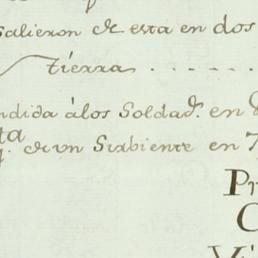 salieron de esta en dos
tierra
ndida álos Soldad.^s en
ta
de un Sirbiente en 7
P
C
V